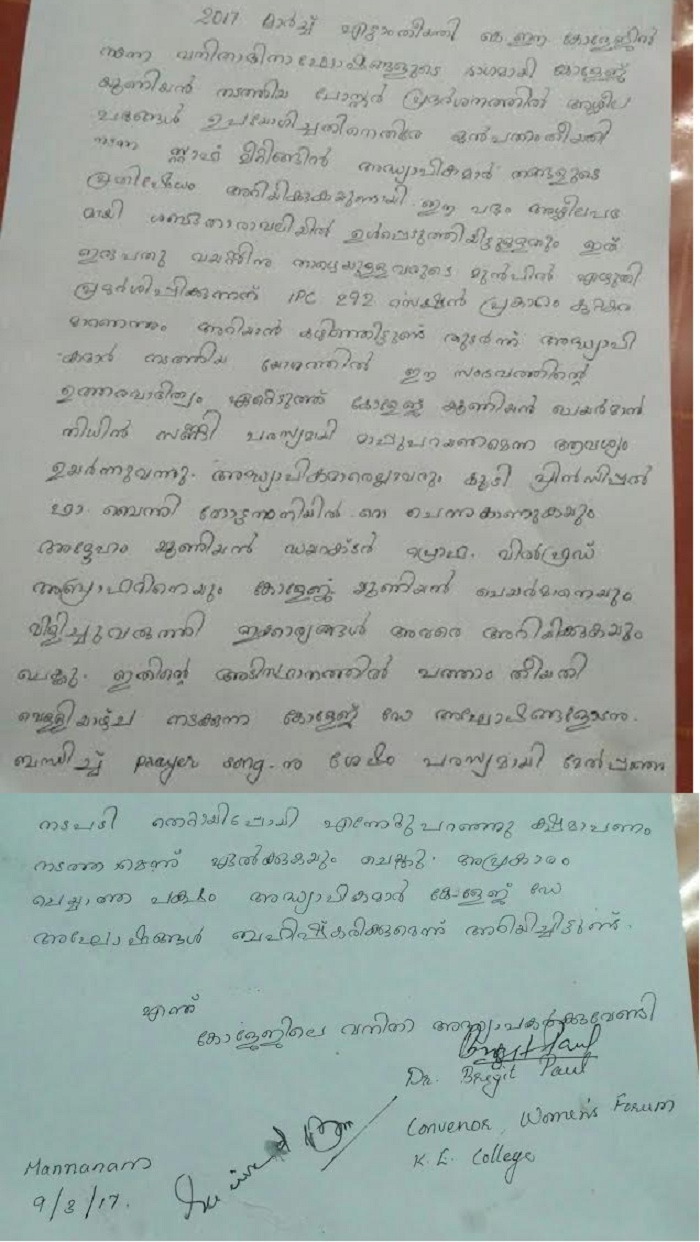 2017 മാർച്ച് എട്ടാം തീയതി കെ.ഇ. കോളേജിൽ
നടന്ന വനിതാദിനാഘോഷങ്ങളുടെ ഭാഗമായി കോളേജ്
യൂണിയൻ നടത്തിയ പോസ്റ്റർ പ്രദർശനത്തിൽ അശ്ലീല
പദങ്ങൾ ഉപയോഗിച്ചതിനെതിരെ ഒൻപതാം തീയതി
നടന്ന സ്റ്റാഫ് മീറ്റിങ്ങിൽ അദ്ധ്യാപികമാർ തങ്ങളുടെ
പ്രതിഷേധം അറിയിക്കുകയുണ്ടായി. ഈ പദം അശ്ലീലപദ
മായി ശബ്ദതാരാവലിയിൽ ഉൾപ്പെടുത്തിയിട്ടുള്ളതും ഇത്
ഇരുപതു വയസ്സിനു താഴെയുള്ളവരുടെ മുൻപിൽ എഴുതി
പ്രദർശിപ്പിക്കുന്നത് IPC 292 സെക്ഷൻ പ്രകാരം കുറ്റകര
മാണെന്നും അറിയാൻ കഴിഞ്ഞിട്ടുണ്ട്. തുടർന്ന് അദ്ധ്യാപി
കമാർ നടത്തിയ യോഗത്തിൽ ഈ സംഭവത്തിന്റെ
ഉത്തരവാദിത്വം ഏറ്റെടുത്ത് കോളേജ് യൂണിയൻ ചെയർമാൻ
നിധിൻ സണ്ണി പരസ്യമായി മാപ്പുപറയണമെന്ന ആവശ്യം
ഉയർന്നുവന്നു. അദ്ധ്യാപികമാരെല്ലാവരും കൂടി പ്രിൻസിപ്പൽ
ഫാ. ചെന്നുകാണുകയും
അദ്ദേഹം യൂണിയൻ ഡയറക്ടർ പ്രൊഫ. വിൽഫ്രഡ്
അബ്രാഹിനെയും കോളേജ് യൂണിയൻ ചെയർമാനെയും
വിളിച്ചുവരുത്തി ഇക്കാര്യങ്ങൾ അവരെ അറിയിക്കുകയും
ചെയ്തു. ഇതിന്റെ അടിസ്ഥാനത്തിൽ പത്താം തീയതി
വെള്ളിയാഴ്ച നടക്കുന്ന കോളേജ് ഡേ ആഘോഷങ്ങളോടനു
ബന്ധിച്ച് prayer song-നു ശേഷം പരസ്യമായി മേൽപ്പറഞ്ഞ
നടപടി തെറ്റായിപ്പോയി എന്നേറ്റുപറഞ്ഞു ക്ഷമാപണം
നടത്താമെന്ന് ഏൽക്കുകയും ചെയ്തു. അപ്രകാരം
ചെയ്യാത്ത പക്ഷം അദ്ധ്യാപികമാർ കോളേജ് ഡേ
ആഘോഷങ്ങൾ ബഹിഷ്കരിക്കുമെന്ന് അറിയിച്ചിട്ടുണ്ട്.
എന്ന്
കോളേജിലെ വനിതാ അദ്ധ്യാപകർക്കുവേണ്ടി
Dr. Brigit Paul
Convenor, Women's Forum
K. E. College
Mannanam
9/3/17.